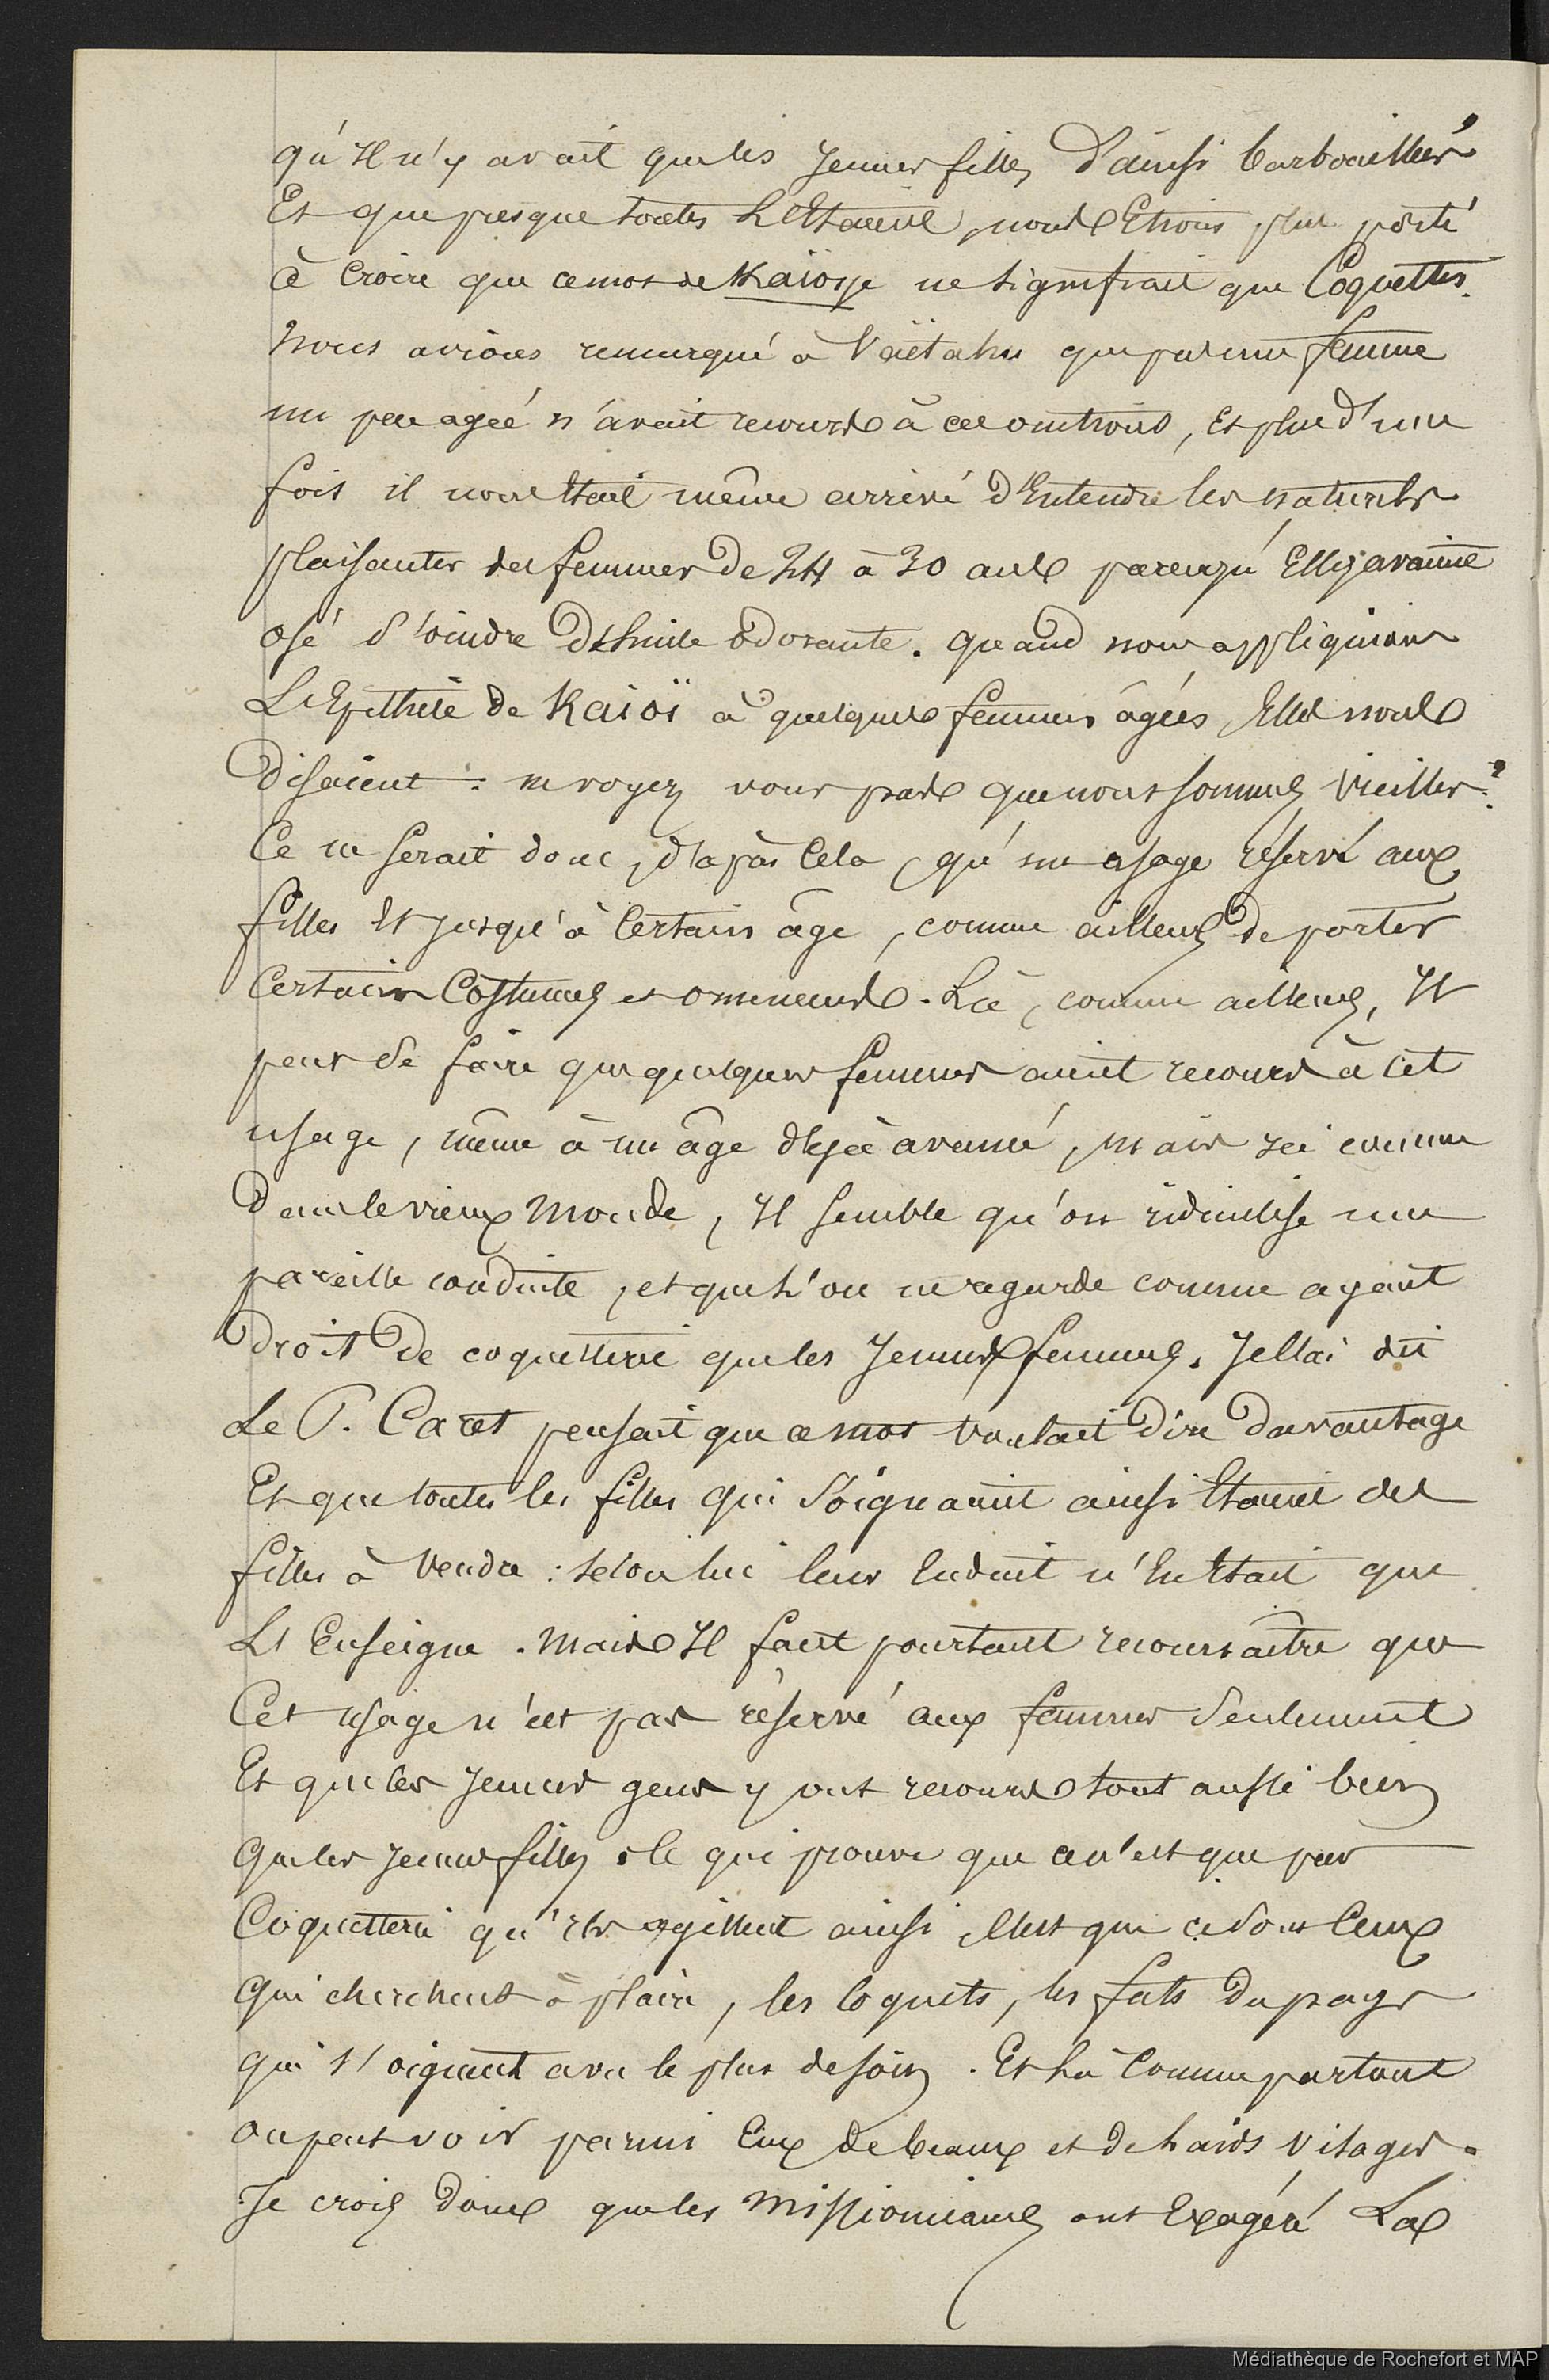 qu'Il n'y avait que les Jeunes filles d'ainsi barbouillées
Et que presque toutes L'Etaient, nous Etions plus porté
à Croire que ce mot de Kaïoïje ne signifiait que Coquettes.
Nous avions remarqué à Vaïtahu que pas une femme
un peu agée n'avait recours à ces onctions, Et plus d'une
fois il nous Etait même arrivé d'Entendre les naturels
plaisanter des femmes de 24 à 30 ans parcequ'Elles avaient
osé s'oindre d'huile odorante. quand nous appliquions
L'Epithète de Kaioï à quelques femmes âgées, Elles nous
disaient : ne voyez vous pas que nous sommes vieilles ?
Ce ne serait donc, d'après Cela, qu'un usage réservé aux
filles Et jusqu'à Certain âge, comme ailleurs de porter
Certains Costumes et ornemens. Là, comme ailleurs, Il
peut se faire que quelques femmes aient recours à cet
usage, même à un âge déjà avancé, mais ici comme
dans le vieux Monde, Il semble qu'on ridiculise une
pareille conduite, et que L'on ne regarde comme ayant
droit de coquetterie que les Jeunes femmes. Je l'ai dit
Le P. Caret pensait que ce mot voulait dire davantage
Et que toutes les filles qui s'oignaient ainsi Etaient des
filles à Vendre : selon lui leur Enduit n'En Etait que
L'Enseigne. Mais Il faut pourtant reconnaître que
Cet usage n'est pas réservé aux femmes seulement
Et que les Jeunes gens y ont recours tout aussi bien
que les Jeunes filles : Ce qui prouve que ce n'est que par
Coquetterie qu'ils agissent ainsi, C'est que ce sont Ceux
qui cherchent à plaire, les Coquets, les fats du pays
qui s'oignent avec le plus de soin. Et Là Comme partout
on peut voir parmi Eux de beaux et de laids visages.
Je crois donc que les Missionnaires ont Exagéré La
Médiathèque de Rochefort et MAP